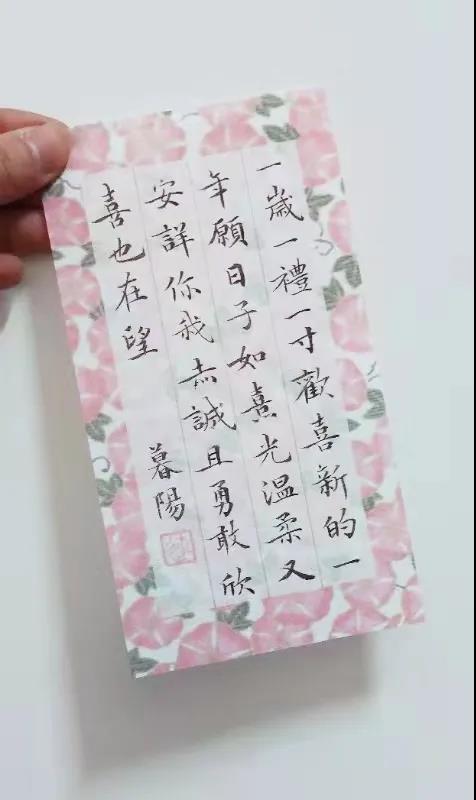 一歲一禮一寸歡喜新的一
年願日子如熹光温柔又
安詳你我赤誠且勇敢欣
喜也在望
暮陽